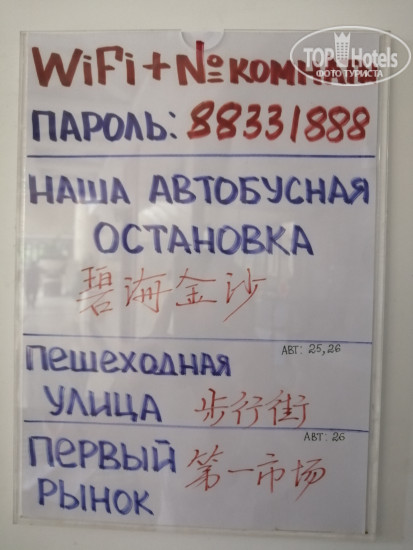 TOP Hotels
ФОТО ТУРИСТА
WiFi + № КОМНАТЫ
ПАРОЛЬ: 88331888
НАША АВТОБУСНАЯ
ОСТАНОВКА
碧海金沙
АВТ: 25,26
ПЕШЕХОДНАЯ
УЛИЦА 步行街
АВТ: 26
ПЕРВЫЙ
РЫНОК 第一市场